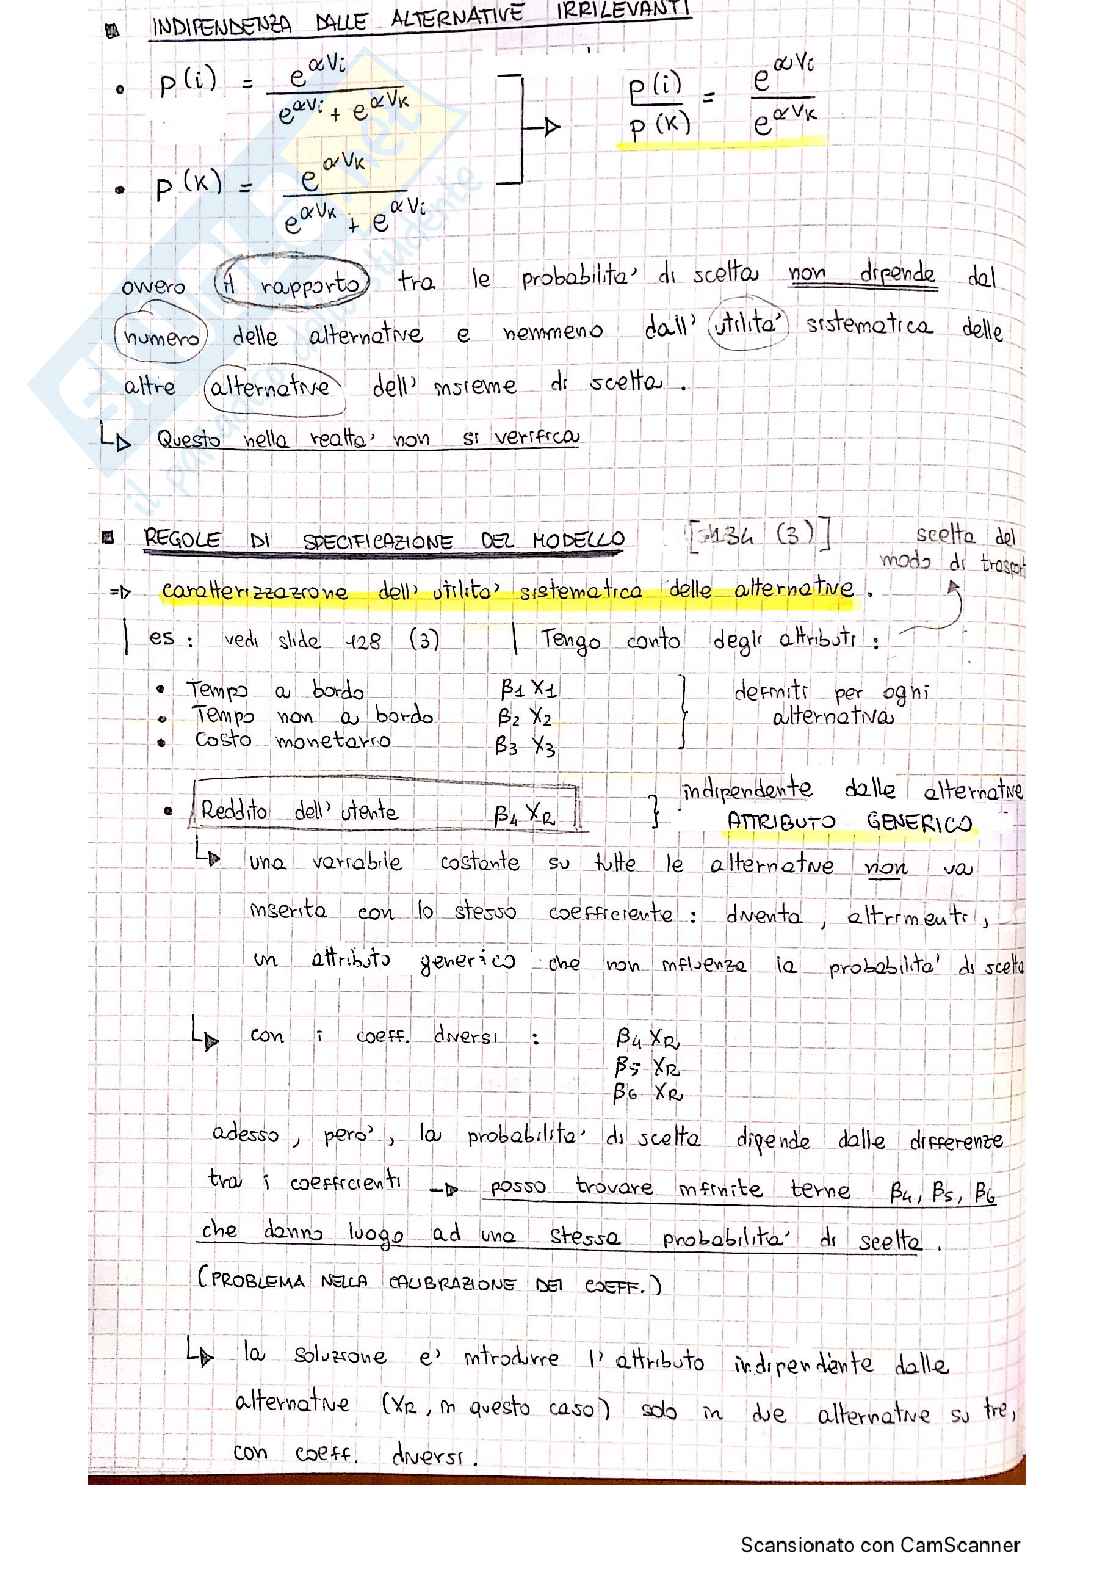 INDIPENDENZA DALLE ALTERNATIVE IRRILEVANTI
• p(i) = e^αVi / (e^αVi + e^αVk)
p(i) / p(k) = e^αVi / e^αVk
• p(k) = e^αVk / (e^αVk + e^αVi)
ovvero il rapporto tra le probabilita' di scelta non dipende dal
numero delle alternative e nemmeno dall' utilita' sistematica delle
altre alternative dell'insieme di scelta.
↳ Questo nella realta' non si verifica
REGOLE DI SPECIFICAZIONE DEL MODELLO [134 (3)]
scelta del
modo di trasport
⇒ caratterizzazione dell' utilita' sistematica delle alternative.
es: vedi slide 128 (3) | Tengo conto degli attributi:
• Tempo a bordo β1 X1
• Tempo non a bordo β2 X2
• Costo monetario β3 X3
definiti per ogni
alternativa
• Reddito dell'utente β4 XR
indipendente dalle alternative
ATTRIBUTO GENERICO
↳ una variabile costante su tutte le alternative non va
inserita con lo stesso coefficiente: diventa, altrimenti,
un attributo generico che non influenza la probabilita' di scelta
↳ con i coeff. diversi: β4 XR
β5 XR
β6 XR
adesso, pero', la probabilita' di scelta dipende dalle differenze
tra i coefficienti → posso trovare infinite terne β4, β5, β6
che danno luogo ad una stessa probabilita' di scelta.
(PROBLEMA NELLA CALIBRAZIONE DEI COEFF.)
↳ la soluzione e' introdurre l' attributo indipendente dalle
alternative (XR, in questo caso) solo in due alternative su tre,
con coeff. diversi.
Scansionato con CamScanner